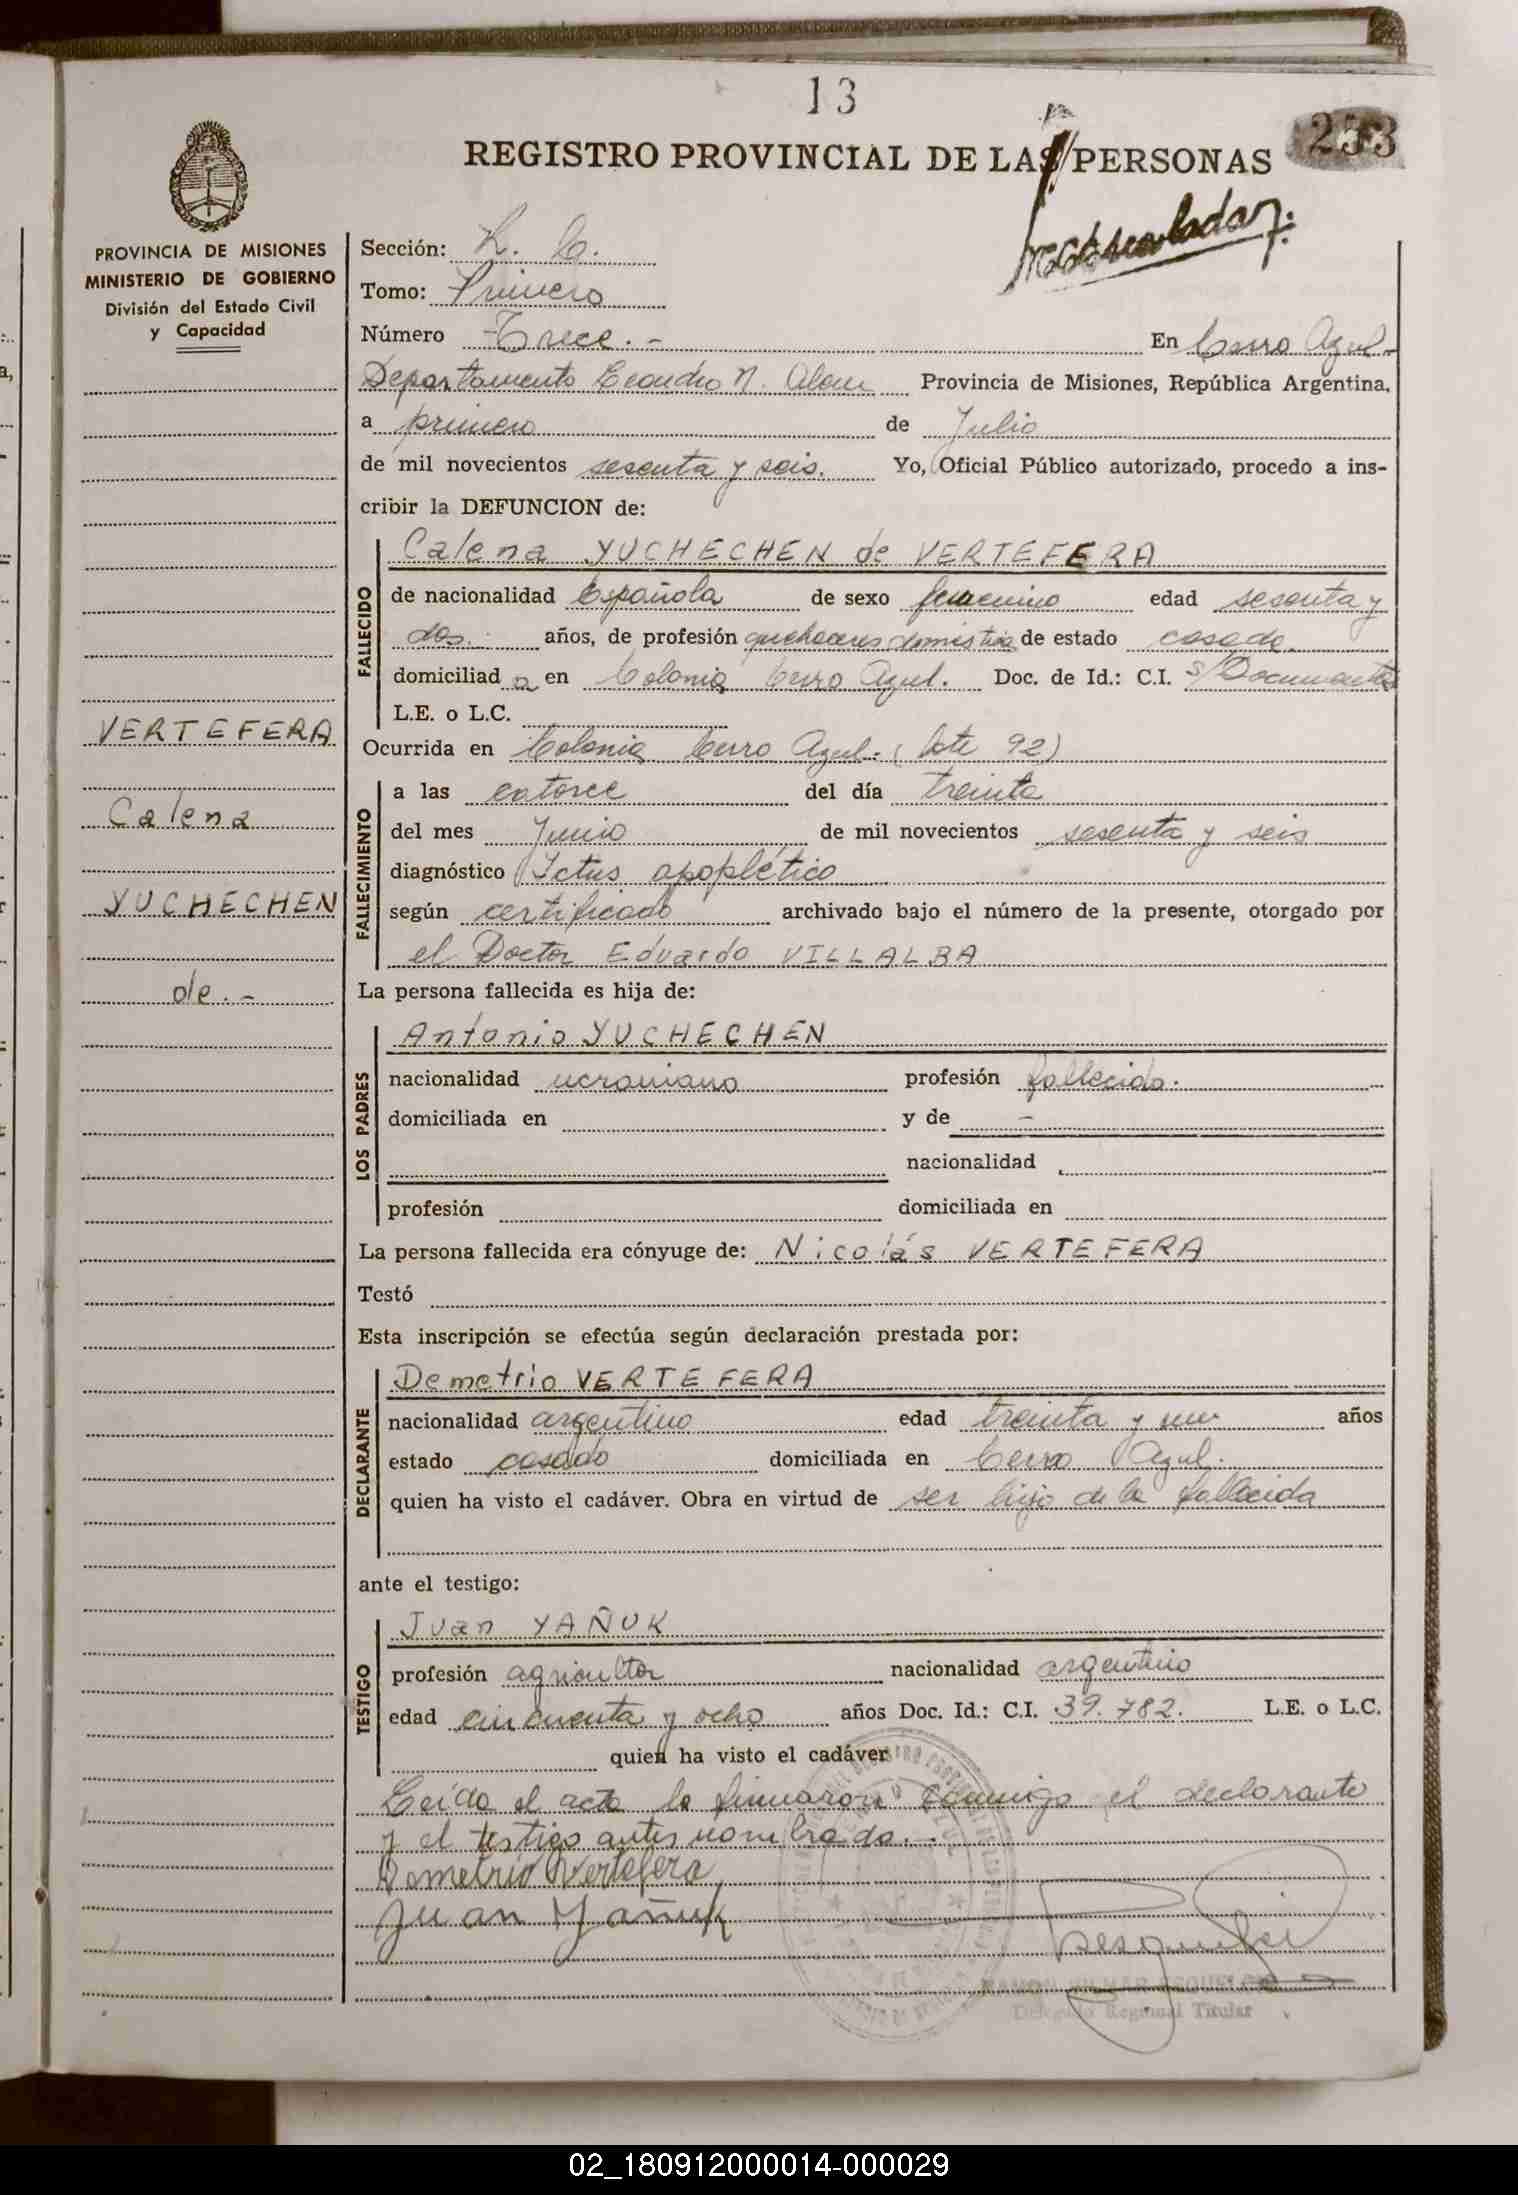 13
253
REGISTRO PROVINCIAL DE LAS PERSONAS
PROVINCIA DE MISIONES
MINISTERIO DE GOBIERNO
División del Estado Civil
y Capacidad
Sección:
Tomo: Primero
Número Trece.- En Cerro Azul-
Departamento Leandro N. Alem Provincia de Misiones, República Argentina,
a primero de Julio
de mil novecientos sesenta y seis. Yo, Oficial Público autorizado, procedo a ins-
cribir la DEFUNCION de:
Calena YUCHECHEN de VERTEFERA
FALLECIDO
de nacionalidad Española de sexo femenino edad sesenta y
dos.- años, de profesión quehaceres domestica de estado casada.
domiciliad a en Colonia Cerro Azul. Doc. de Id.: C.I. s/Documentos
L.E. o L.C.
VERTEFERA
Calena
YUCHECHEN
de.-
Ocurrida en Colonia Cerro Azul.- (Lote 92)
FALLECIMIENTO
a las catorce del día treinta
del mes Junio de mil novecientos sesenta y seis
diagnóstico Ictus apoplético
según certificado archivado bajo el número de la presente, otorgado por
el Doctor Eduardo VILLALBA
La persona fallecida es hija de:
LOS PADRES
Antonio YUCHECHEN
nacionalidad ucraniano profesión fallecido.
domiciliada en y de -
nacionalidad
profesión domiciliada en
La persona fallecida era cónyuge de: Nicolás VERTEFERA
Testó
Esta inscripción se efectúa según declaración prestada por:
DECLARANTE
Demetrio VERTEFERA
nacionalidad argentino edad treinta y un años
estado casado domiciliada en Cerro Azul.
quien ha visto el cadáver. Obra en virtud de ser hijo de la fallecida
ante el testigo:
TESTIGO
Juan YAÑUK
profesión agricultor nacionalidad argentino
edad cincuenta y ocho años Doc. Id.: C.I. 39.782. L.E. o L.C.
quien ha visto el cadáver
Leída el acta la firmaron conmigo el declarante
y el testigo antes nombrado.-
Demetrio Vertefera
Juan Yañuk
Delegado Regional Titular
02_180912000014-000029